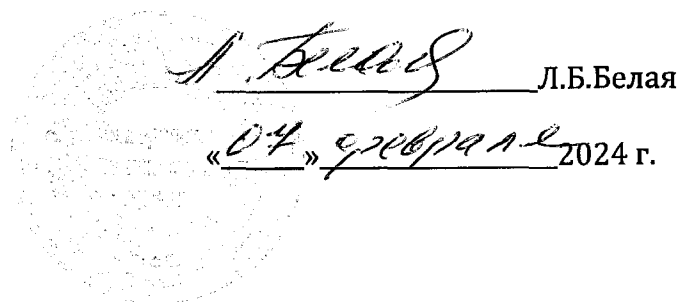 Л. Белая Л.Б.Белая
«07» февраля 2024 г.